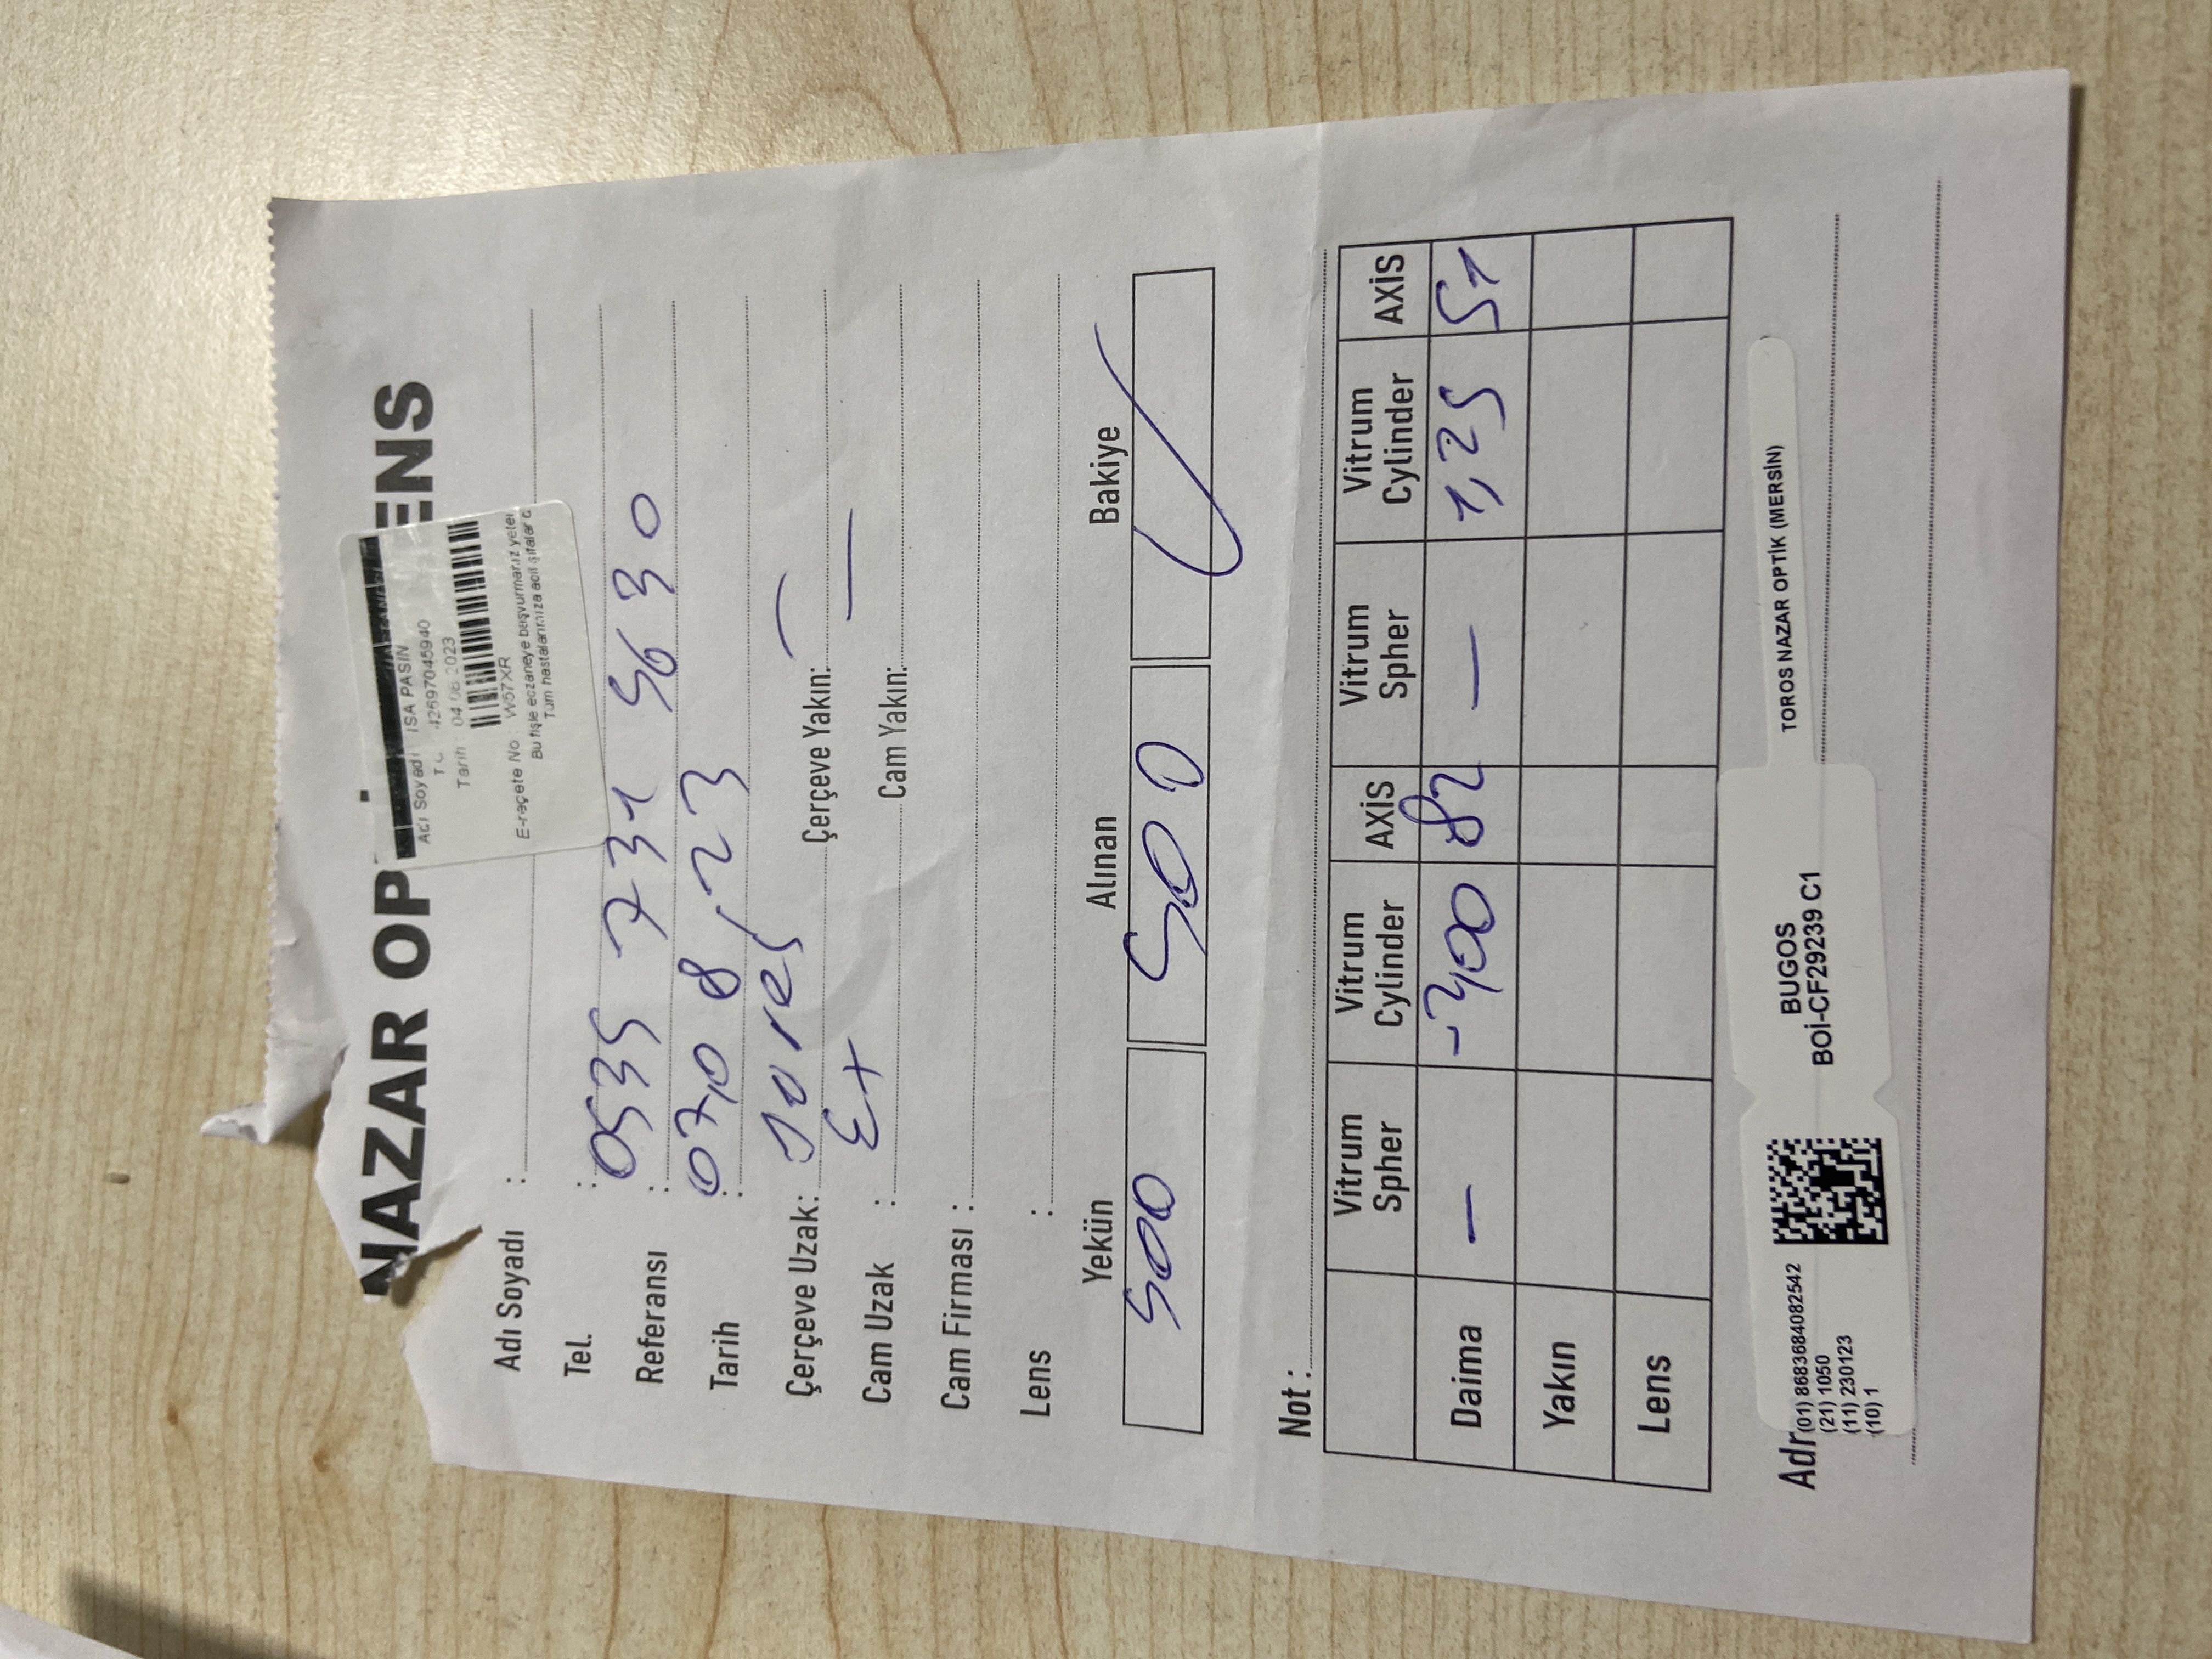 NAZAR OP ENS
Adı Soyadı : ISA PASIN
TC 42697045940
Tarih : 04.08.2023
E-reçete No W57XR
Bu fişle eczaneye başvurmanız yeter
Tüm hastalarımıza acil şifalar d
Adı Soyadı :
Tel. : 0535 731 5630
Referansı :
Tarih : 07,08,23
Çerçeve Uzak: Çerçeve Yakın: —
Cam Uzak : Ex Cam Yakın: —
Cam Firması :
Lens :
Yekün Alınan Bakiye
500 500
Not :
Vitrum Spher Vitrum Cylinder AXİS Vitrum Spher Vitrum Cylinder AXİS
Daima — -2,00 82 — 1,25 51
Yakın
Lens
Adr
(01) 8683684082542
(21) 1050
(11) 230123
(10) 1
BUGOS
BOİ-CF29239 C1
TOROS NAZAR OPTİK (MERSİN)